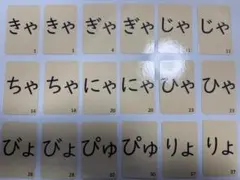 きゃ きゃ ぎゃ ぎゃ じゃ じゃ
ちゃ ちゃ にゃ にゃ ひゃ ひゃ
びょ びょ ぴゅ ぴゅ りょ りょ